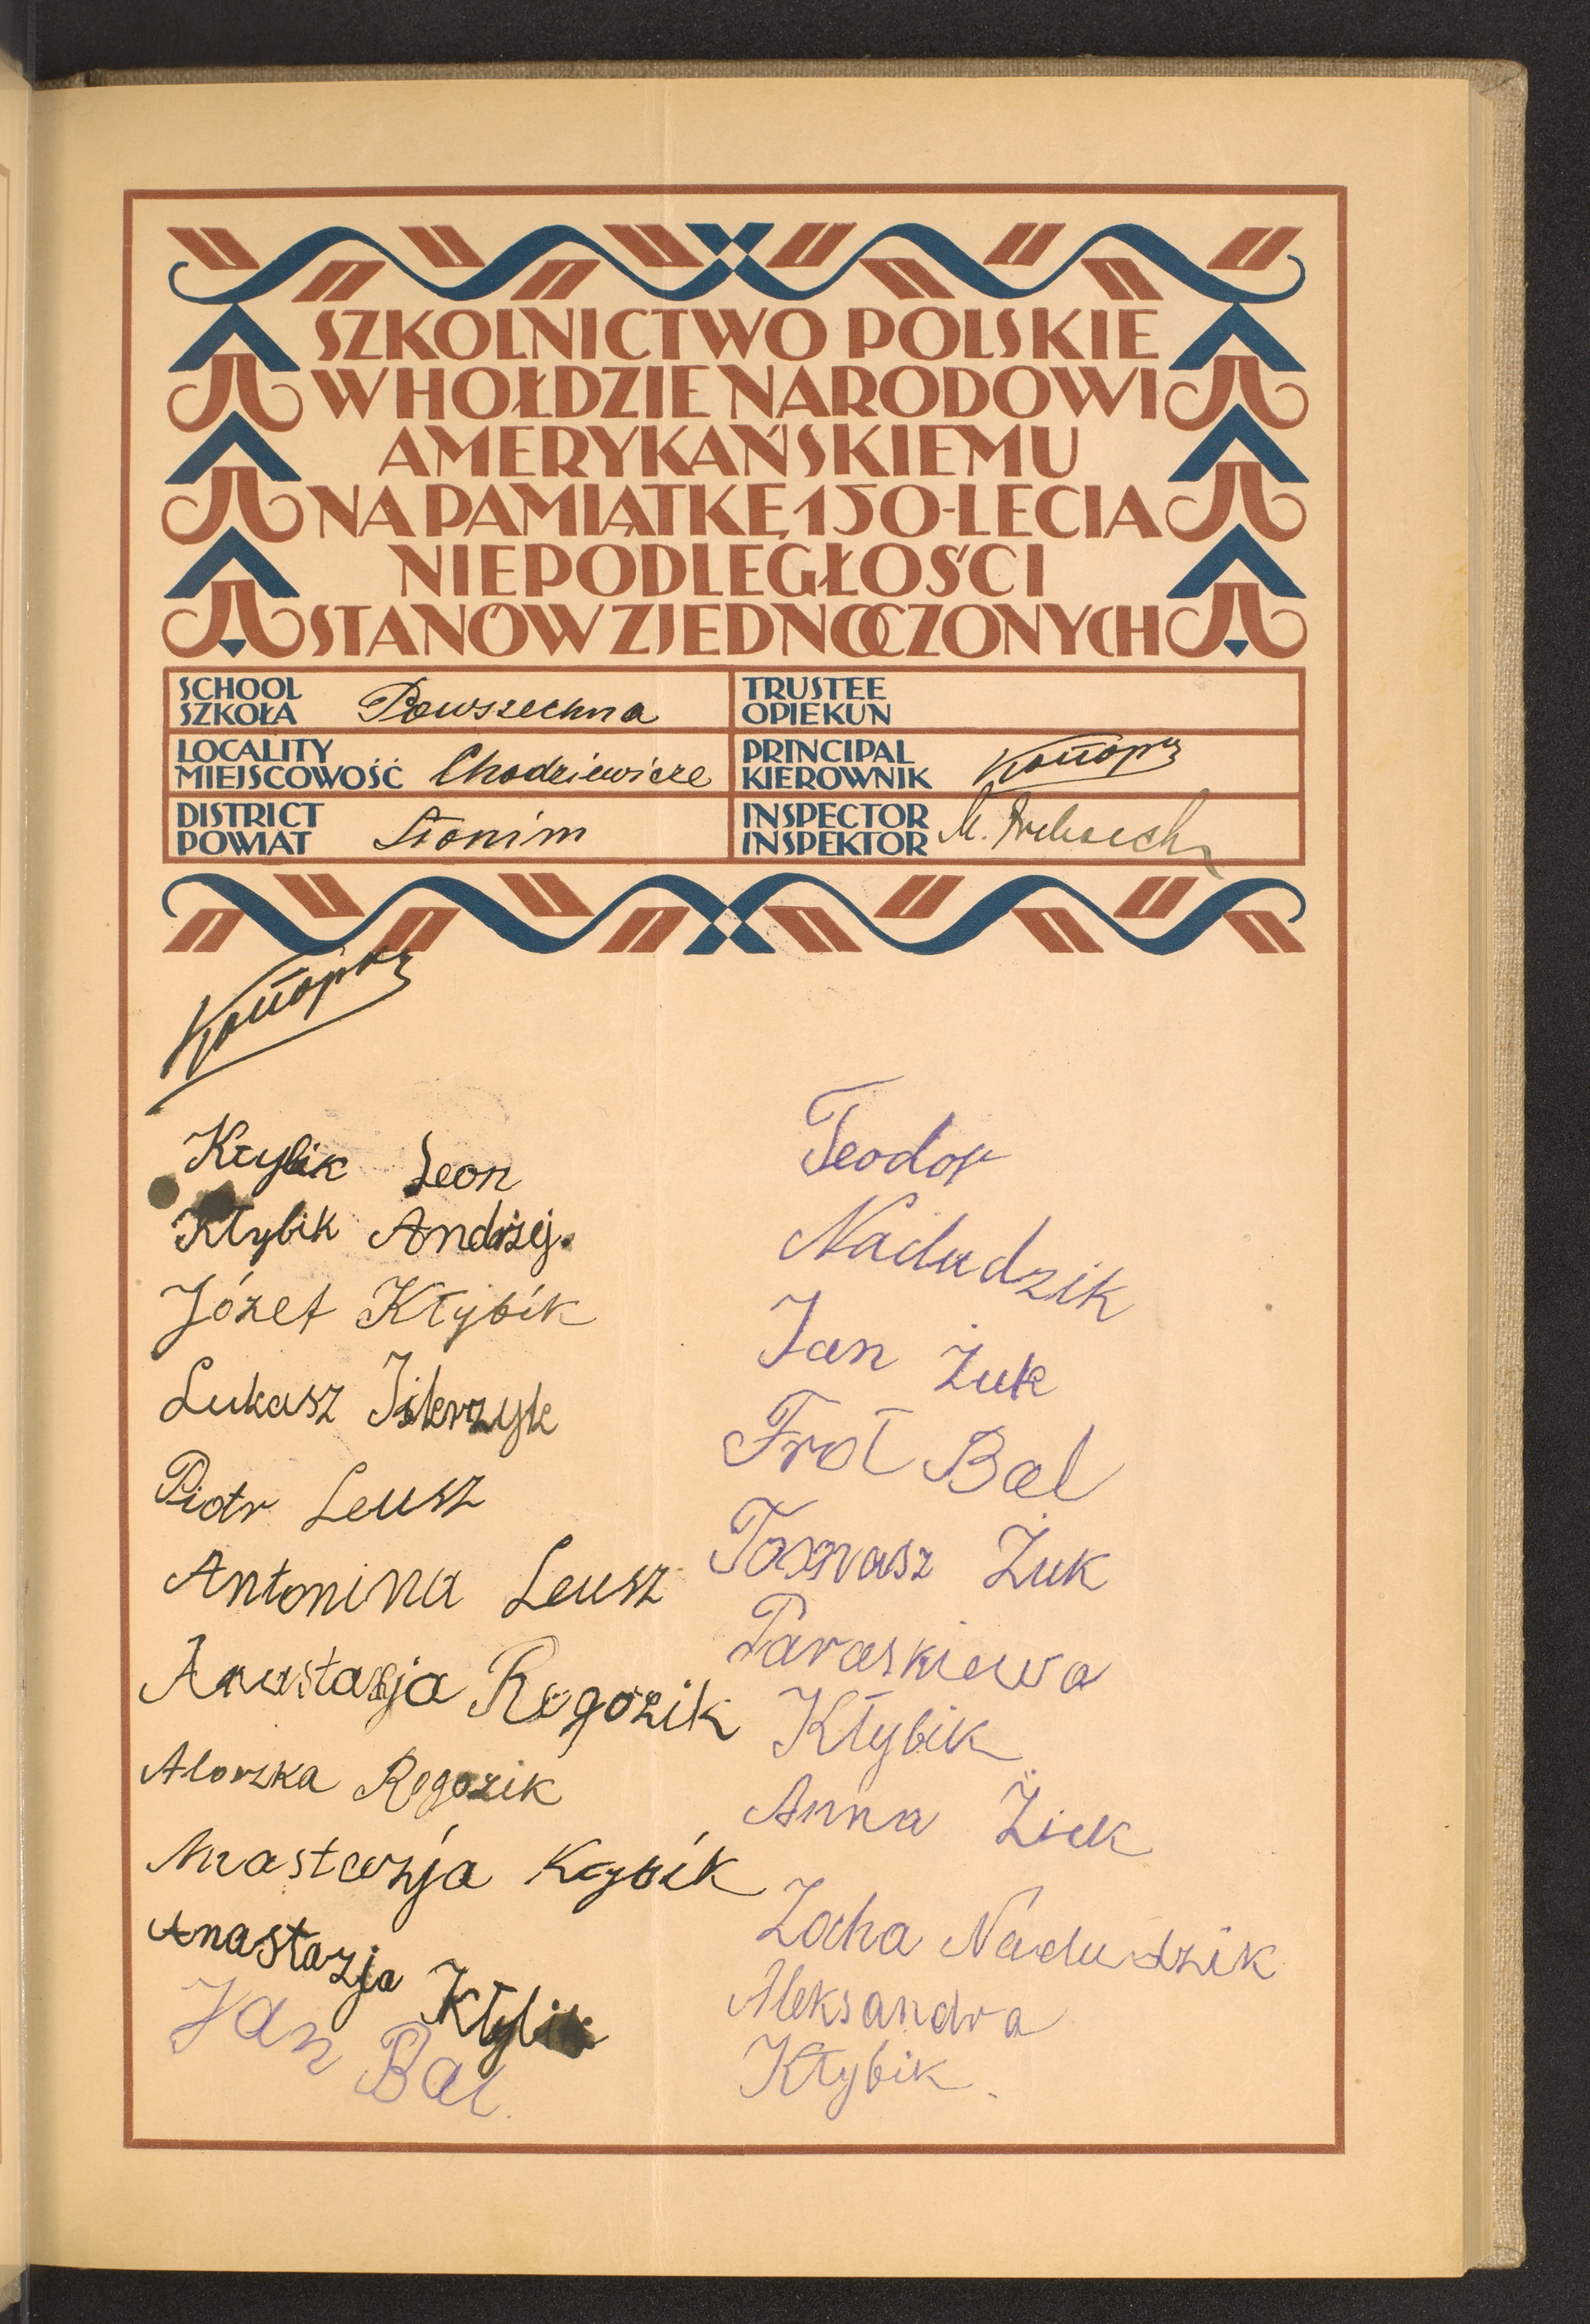 SZKOLNICTWO POLSKIE
W HOŁDZIE NARODOWI
AMERYKAŃSKIEMU
NA PAMIĄTKĘ 150-LECIA
NIEPODLEGŁOŚCI
STANÓW ZJEDNOCZONYCH
SCHOOL
SZKOŁA Powszechna
TRUSTEE
OPIEKUN
LOCALITY
MIEJSCOWOŚĆ Chodziewicze
PRINCIPAL
KIEROWNIK
DISTRICT
POWIAT Słonim
INSPECTOR
INSPEKTOR M.
Kłybik Leon
Kłybik Andrzej.
Józef Kłybik
Lukasz Iskrzyk
Piotr Leusz
Antonina Leusz
Anastazja Rogozik
Rogozik
Kłybik
Anastazja Kłybik
Jan Bal.
Teodor
Naidudzik
Jan Żuk
Froł Bal
Tomasz Żuk
Paraskiewa
Kłybik
Anna Żuk
Zocha Nadudzik
Aleksandra
Kłybik.